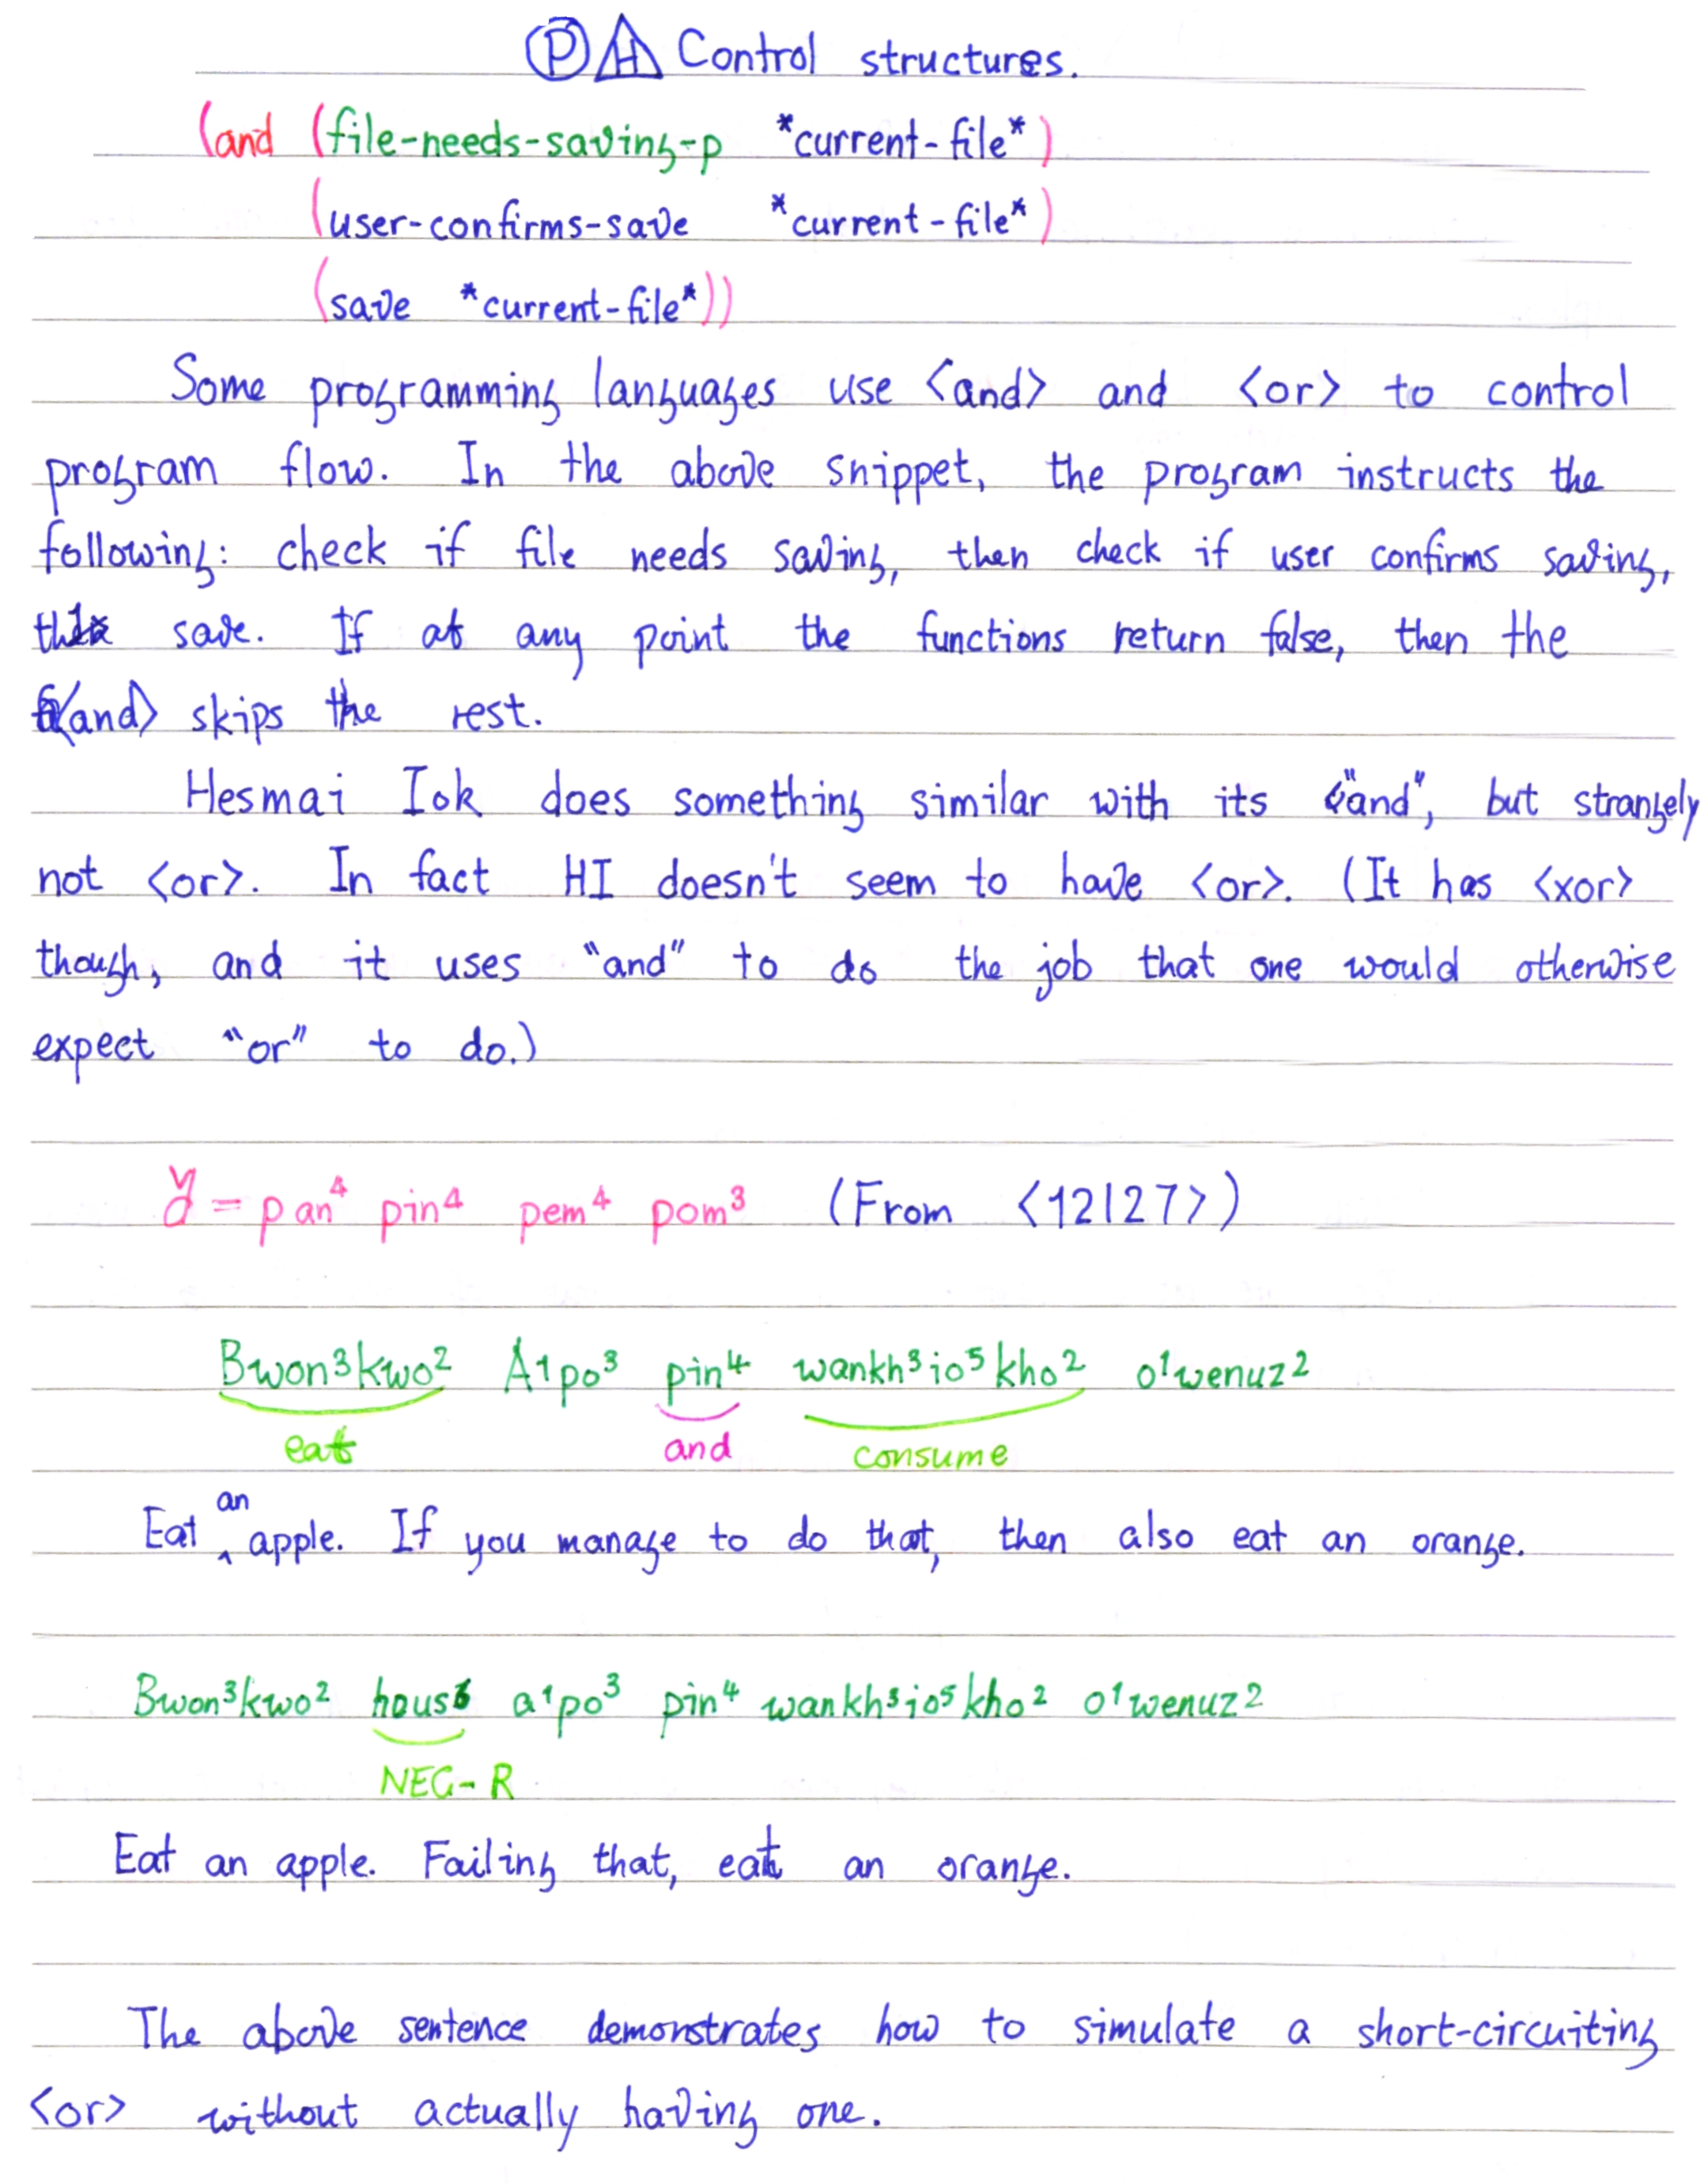 Ⓟ H Control structures.
(and (file-needs-saving-p *current-file*)
(user-confirms-save *current-file*)
(save *current-file*))
Some programming languages use <and> and <or> to control
program flow. In the above snippet, the program instructs the
following: check if file needs saving, then check if user confirms saving,
save. If at any point the functions return false, then the
<and> skips the rest.
Hesmai Iok does something similar with its "and", but strangely
not <or>. In fact HI doesn't seem to have <or>. (It has <xor>
though, and it uses "and" to do the job that one would otherwise
expect "or" to do.)
= pan⁴ pin⁴ pem⁴ pom³ (From <12127>)
Bwon³kwo² A1po³ pin⁴ wankh³io⁵kho² o¹wenuz²
eat and consume
an
Eat ‸ apple. If you manage to do that, then also eat an orange.
Bwon³kwo² a¹po³ pin⁴ wankh³io⁵kho² o¹wenuz²
NEG-R
Eat an apple. Failing that, eat an orange.
The above sentence demonstrates how to simulate a short-circuiting
<or> without actually having one.